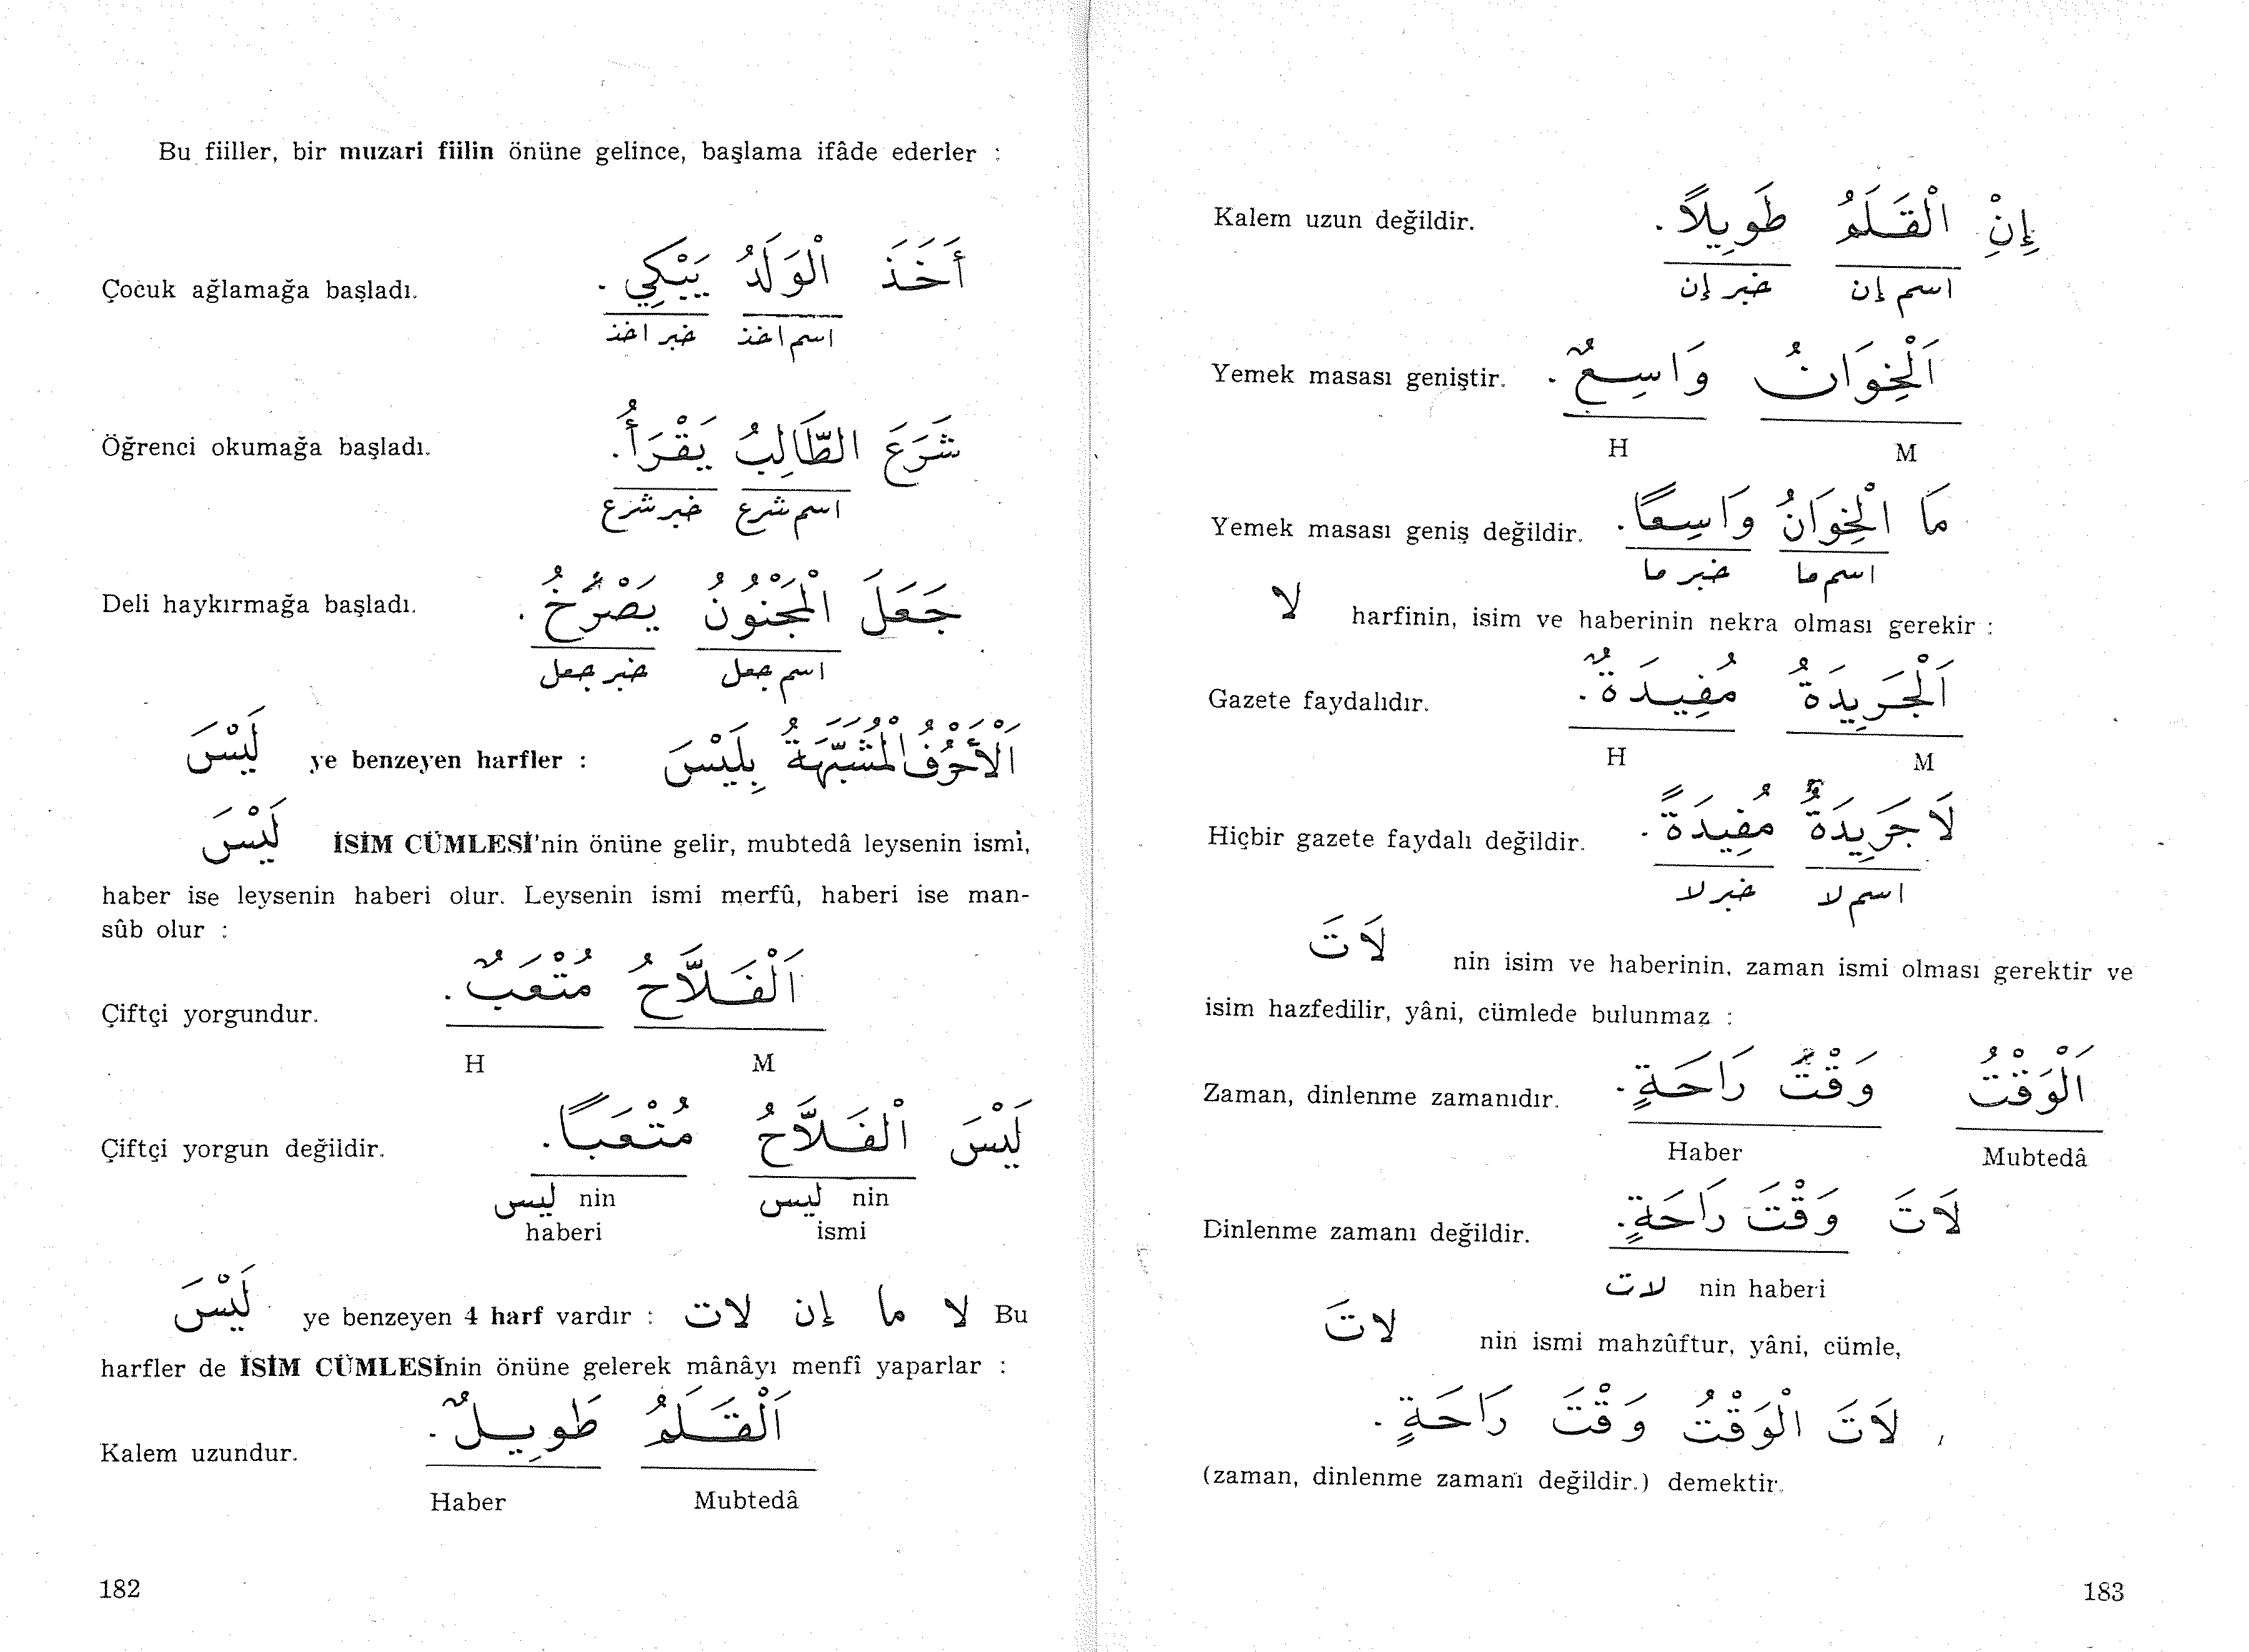 Bu fiiller, bir muzari fiilin önüne gelince, başlama ifâde ederler :
Çocuk ağlamağa başladı. أَخَذَ الْوَلَدُ يَبْكِي .
اسم اخذ خبر اخذ
Öğrenci okumağa başladı. شَرَعَ الطَّالِبُ يَقْرَأُ.
اسم شرع خبر شرع
Deli haykırmağa başladı. جَعَلَ الْمَجْنُونُ يَصْرُخُ .
اسم جعل خبر جعل
لَيْسَ ye benzeyen harfler : اَلْأَحْرُفُ الْمُشَبَّهَةُ بِلَيْسَ
لَيْسَ İSİM CÜMLESİ'nin önüne gelir, mubtedâ leysenin ismi,
haber ise leysenin haberi olur. Leysenin ismi merfû, haberi ise man-
sûb olur :
Çiftçi yorgundur. اَلْفَلَّاحُ مُتْعَبٌ .
H M
Çiftçi yorgun değildir. لَيْسَ الْفَلَّاحُ مُتْعَبًا .
ليس nin ليس nin
haberi ismi
لَيْسَ ye benzeyen 4 harf vardır : لا ما إن لات Bu
harfler de İSİM CÜMLESİnin önüne gelerek mânâyı menfî yaparlar :
Kalem uzundur. اَلْقَلَمُ طَوِيلٌ .
Haber Mubtedâ
182
Kalem uzun değildir. إِنِ الْقَلَمُ طَوِيلاً .
اسم إن خبر إن
Yemek masası geniştir. اَلْخِوَانُ وَاسِعٌ .
H M
Yemek masası geniş değildir. مَا الْخِوَانُ وَاسِعًا .
اسم ما خبر ما
لا harfinin, isim ve haberinin nekra olması gerekir :
Gazete faydalıdır. اَلْجَرِيدَةُ مُفِيدَةٌ .
H M
Hiçbir gazete faydalı değildir. لَا جَرِيدَةٌ مُفِيدَةً .
اسم لا خبر لا
لَاتَ nin isim ve haberinin, zaman ismi olması gerektir ve
isim hazfedilir, yâni, cümlede bulunmaz :
Zaman, dinlenme zamanıdır. اَلْوَقْتُ وَقْتُ رَاحَةٍ .
Haber Mubtedâ
Dinlenme zamanı değildir. لَاتَ وَقْتَ رَاحَةٍ .
لات nin haberi
لَاتَ nin ismi mahzûftur, yâni, cümle,
لَاتَ الْوَقْتُ وَقْتَ رَاحَةٍ .
(zaman, dinlenme zamanı değildir.) demektir.
183